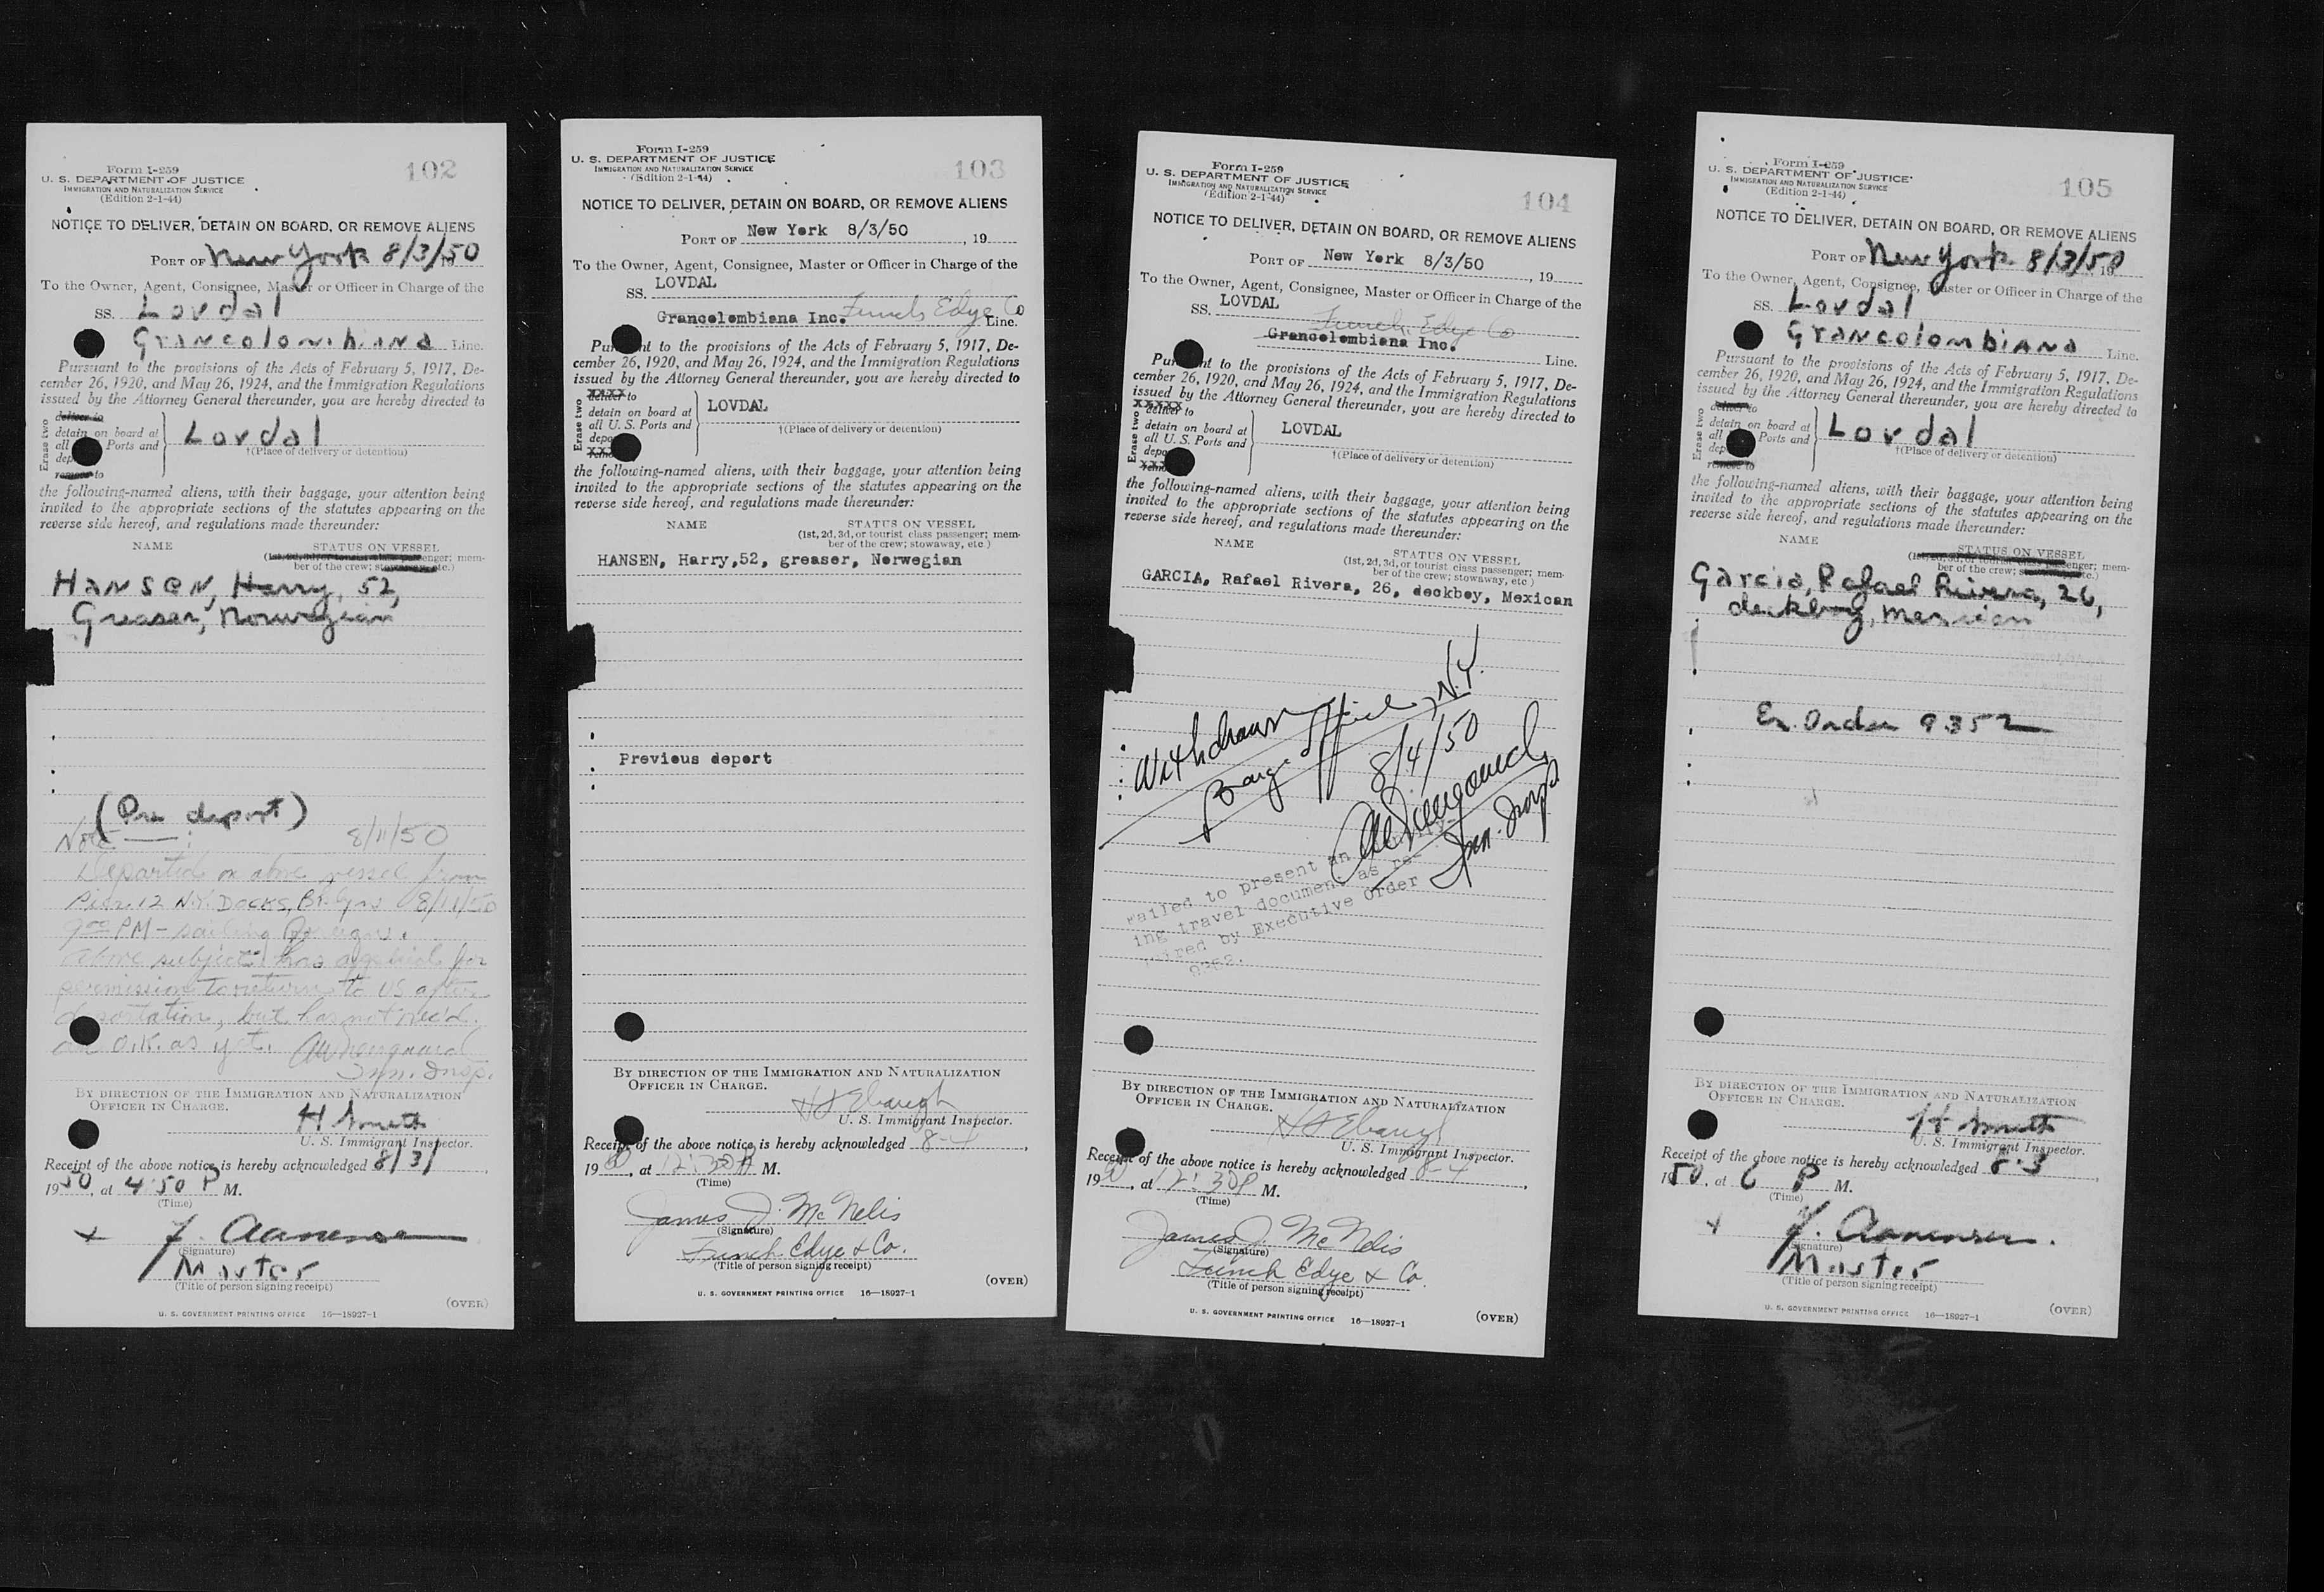 Form I-259
U. S. DEPARTMENT OF JUSTICE
IMMIGRATION AND NATURALIZATION SERVICE
(Edition 2-1-44)
102
NOTICE TO DELIVER, DETAIN ON BOARD, OR REMOVE ALIENS
PORT OF New York 8/3/50
To the Owner, Agent, Consignee, Master or Officer in Charge of the
SS. Lovdal
Grancolombiana Line.
Pursuant to the provisions of the Acts of February 5, 1917, De-
cember 26, 1920, and May 26, 1924, and the Immigration Regulations
issued by the Attorney General thereunder, you are hereby directed to
Erase two
deliver to
detain on board at
all Ports and
dep
remove to
Lovdal
†(Place of delivery or detention)
the following-named aliens, with their baggage, your attention being
invited to the appropriate sections of the statutes appearing on the
reverse side hereof, and regulations made thereunder:
NAME STATUS ON VESSEL
(1st, 2d, 3d, or tourist class passenger; mem-
ber of the crew; stowaway, etc.)
HANSEN, Harry, 52,
Greaser, Norwegian
(Pre deport)
Note: 8/11/50
Departed on above vessel from
Pier 12 N.Y. Docks, Bklyn 8/11/50
9 00 PM - sailing foreign.
Above subject has applied for
permission to return to US after
deportation, but has not rec'd.
an O.K. as yet.
Imm. Insp.
BY DIRECTION OF THE IMMIGRATION AND NATURALIZATION
OFFICER IN CHARGE.
H Smith
U. S. Immigrant Inspector.
Receipt of the above notice is hereby acknowledged 8/3/
1950, at 4:50 P M.
(Time)
x J. Aanensen
(Signature)
Master
(Title of person signing receipt)
(OVER)
U. S. GOVERNMENT PRINTING OFFICE 16—18927-1
Form I-259
U. S. DEPARTMENT OF JUSTICE
IMMIGRATION AND NATURALIZATION SERVICE
(Edition 2-1-44)
103
NOTICE TO DELIVER, DETAIN ON BOARD, OR REMOVE ALIENS
PORT OF New York 8/3/50, 19
To the Owner, Agent, Consignee, Master or Officer in Charge of the
SS. LOVDAL
Grancolombiana Inc. Funch Edye Co Line.
Pur nt to the provisions of the Acts of February 5, 1917, De-
cember 26, 1920, and May 26, 1924, and the Immigration Regulations
issued by the Attorney General thereunder, you are hereby directed to
Erase two
deliver to
detain on board at
all U. S. Ports and
depo
remo
LOVDAL
†(Place of delivery or detention)
the following-named aliens, with their baggage, your attention being
invited to the appropriate sections of the statutes appearing on the
reverse side hereof, and regulations made thereunder:
NAME STATUS ON VESSEL
(1st, 2d, 3d, or tourist class passenger; mem-
ber of the crew; stowaway, etc.)
HANSEN, Harry,52, greaser, Norwegian
Previous deport
BY DIRECTION OF THE IMMIGRATION AND NATURALIZATION
OFFICER IN CHARGE.
U. S. Immigrant Inspector.
Receipt of the above notice is hereby acknowledged 8-4,
1950, at 12:30P M.
(Time)
James J. McNelis
(Signature)
Funch Edye & Co.
(Title of person signing receipt)
(OVER)
U. S. GOVERNMENT PRINTING OFFICE 16—18927-1
Form I-259
U. S. DEPARTMENT OF JUSTICE
IMMIGRATION AND NATURALIZATION SERVICE
(Edition 2-1-44)
104
NOTICE TO DELIVER, DETAIN ON BOARD, OR REMOVE ALIENS
PORT OF New York 8/3/50, 19
To the Owner, Agent, Consignee, Master or Officer in Charge of the
SS. LOVDAL
Funch, Edye Co
Grancolombiana Inc. Line.
Pur nt to the provisions of the Acts of February 5, 1917, De-
cember 26, 1920, and May 26, 1924, and the Immigration Regulations
issued by the Attorney General thereunder, you are hereby directed to
Erase two
deliver to
detain on board at
all U. S. Ports and
depo
remo
LOVDAL
†(Place of delivery or detention)
the following-named aliens, with their baggage, your attention being
invited to the appropriate sections of the statutes appearing on the
reverse side hereof, and regulations made thereunder:
NAME STATUS ON VESSEL
(1st, 2d, 3d, or tourist class passenger; mem-
ber of the crew; stowaway, etc.)
GARCIA, Rafael Rivera, 26, deckboy, Mexican
Withdrawn
Barge Office, N.Y.
8/4/50
Imm. Insp
Failed to present an
ing travel document as re-
uired by Executive Order
9352.
BY DIRECTION OF THE IMMIGRATION AND NATURALIZATION
OFFICER IN CHARGE.
U. S. Immigrant Inspector.
Receipt of the above notice is hereby acknowledged 8-4,
1950, at 12:30P M.
(Time)
James J. McNelis
(Signature)
Funch Edye & Co.
(Title of person signing receipt)
(OVER)
U. S. GOVERNMENT PRINTING OFFICE 16—18927-1
Form I-259
U. S. DEPARTMENT OF JUSTICE
IMMIGRATION AND NATURALIZATION SERVICE
(Edition 2-1-44)
105
NOTICE TO DELIVER, DETAIN ON BOARD, OR REMOVE ALIENS
PORT OF New York 8/3/50
To the Owner, Agent, Consignee, Master or Officer in Charge of the
SS. Lovdal
Grancolombiana Line.
Pursuant to the provisions of the Acts of February 5, 1917, De-
cember 26, 1920, and May 26, 1924, and the Immigration Regulations
issued by the Attorney General thereunder, you are hereby directed to
Erase two
deliver to
detain on board at
all Ports and
dep
remove to
Lovdal
†(Place of delivery or detention)
the following-named aliens, with their baggage, your attention being
invited to the appropriate sections of the statutes appearing on the
reverse side hereof, and regulations made thereunder:
NAME STATUS ON VESSEL
(1st, 2d, 3d, or tourist class passenger; mem-
ber of the crew; stowaway, etc.)
Garcia, Rafael Rivera, 26,
deckboy, Mexican
Ex. Order 9352
BY DIRECTION OF THE IMMIGRATION AND NATURALIZATION
OFFICER IN CHARGE.
H Smith
U. S. Immigrant Inspector.
Receipt of the above notice is hereby acknowledged 8-3,
1950, at 6 P M.
(Time)
x J. Aanensen.
(Signature)
Master
(Title of person signing receipt)
(OVER)
U. S. GOVERNMENT PRINTING OFFICE 16—18927-1